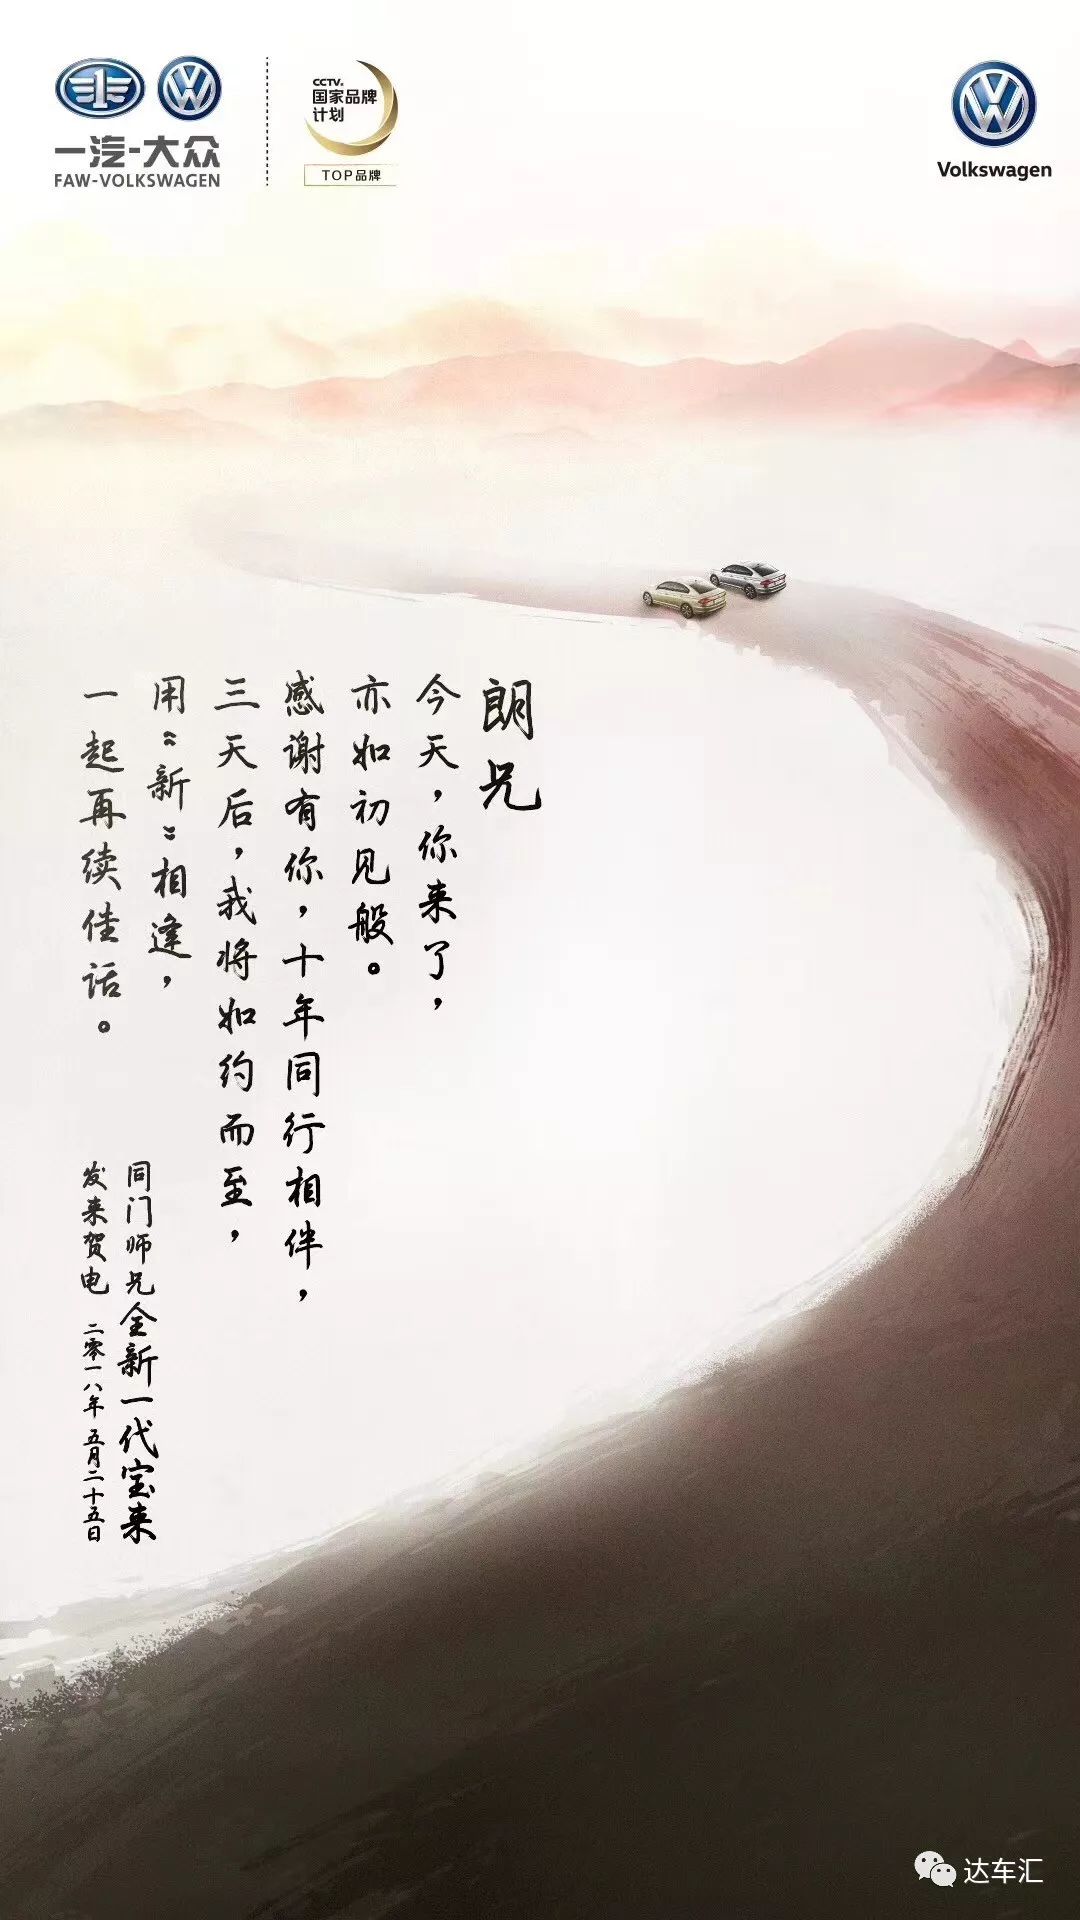 一汽-大众
FAW-VOLKSWAGEN
CCTV.
国家品牌
计划
TOP品牌
Volkswagen
朗兄
今天，你来了，
亦如初见般。
感谢有你，十年同行相伴，
三天后，我将如约而至，
用“新”相逢，
一起再续佳话。
同门师兄全新一代宝来
发来贺电 二零一八年 五月二十五日
达车汇